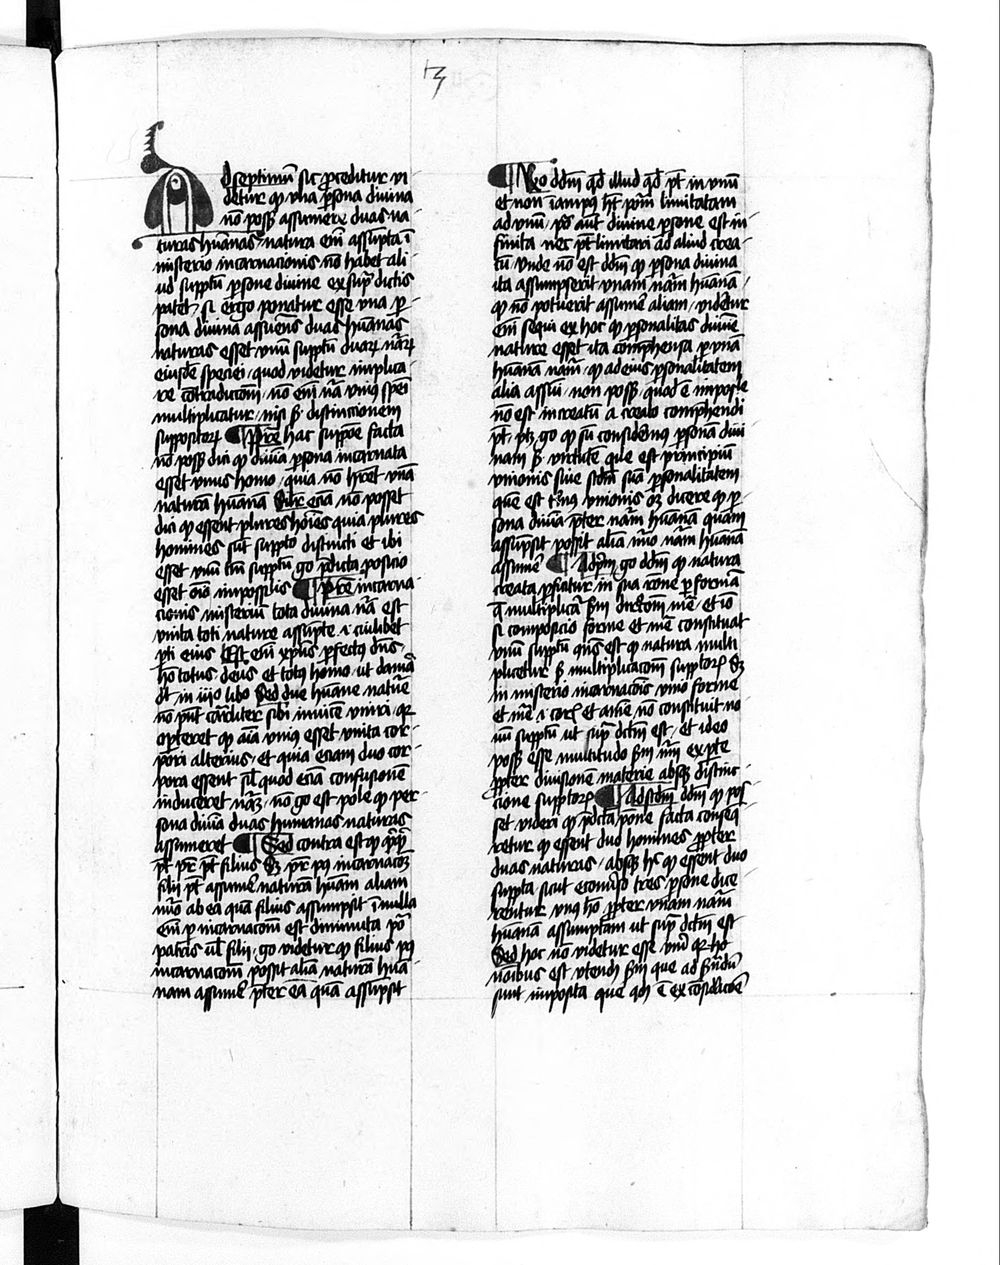 13
Ad septimu͂ sic p͂ceditur vi
detur qꝫ vna p͂sona diuina
no͂ possꝫ assumere duas na
turas hu͂anas / natura em͂ assu͂pta i͂
misterio incarnacionis no͂ habet ali
ud supp͂tu͂ p͂sone diuine ex sup͂ dictis
patet / si ergo ponatur esse vna p͂
sona diuina assume͂s duas hu͂anas
naturas esset vnu͂ supp͂tu͂ duaꝝ n͂aꝝ
eiusde͂ speciei / quod videtur implica
re co͂tradicto͂m / no͂ em͂ n͂a vniꝰ sp͂ei
multiplicatur / nisi ẜ distinctionem
suppositoꝝ ¶ Pret͂e hac suppo͂e facta
no͂ possꝫ dici qꝫ diui͂a p͂sona incarnata
esset vnus homo / quia no͂ h͂ret vna͂
natura͂ huma͂na Silr ecia͂ no͂ posset
dici qꝫ essent plures ho͂ies quia plures
homines su͂t supp͂to distincti et ibi
esset vnu͂ tm͂ supp͂tu͂ go p͂dicta posicio
esset o͂io impossilis ¶ Pret͂e incarna
cionis misteriu͂ tota diuina n͂a est
vnita toti nature assu͂pte .i. cuilibet
p͂ti eius Est em͂ xp͂us p͂fectꝰ d͂ns
h͂o totus deus et totꝰ homo / ut dama͂
dt͂ in iijo libo Sed due hu͂ane natur͂e
no͂ pn͂t to͂tliter sibi inuice͂ vniri / qꝛ
oporteret qꝫ ai͂a vniꝰ esset vnita cor
pori alterius / et quia eciam duo cor
pora essent si͂l quod ecia͂ confusione͂
induceret n͂aꝝ / no͂ go est po͂le qꝫ per
sona diui͂a duas humanas naturas
assumeret ¶ Sed contra est qꝫ q͂cq͂d
pt͂ pr͂ pt͂ filius Sꝫ pr͂ pꝰ incarnaco͂ꝫ
filii pt͂ assume͂ natura͂ hu͂am aliam
n͂uo ab ea qua͂ filius assumpsit i͂ nulla
em͂ p͂ incarnaco͂m est diminuta po͂
patris ul͂ filii / go videtur qꝫ filius pꝰ
incarnaco͂m possit alia͂ natura͂ hu͂a
nam assume͂ p͂ter ea͂ qua͂ assu͂psit
¶ Rn͂o dd͂m qd͂ illud qd͂ pt͂ in vnu͂
et non i͂ ampꝰ ht͂ po͂m limitatam
ad vnu͂ / po͂ aut͂ diuine p͂sone est in
finita nec pt͂ limitari ad aliud crea
tu͂ / vnde no͂ est dd͂m qꝫ p͂sona diuina
ita assumpserit vnam n͂am hu͂ana͂
qꝫ no͂ potuerit assume͂ aliam / videtur
em͂ sequi ex hoc qꝫ p͂sonalitas diui͂e
nature esset ita co͂mphe͂sa p͂ vna͂
hu͂ana͂ n͂am / qꝫ ad eius p͂sonalitatem
alia assu͂i / non possꝫ / quod e͂ impo͂le
no͂ est increatu͂ a creato comphendi
pt͂ / ptꝫ go qꝫ su͂ conside͂mꝰ p͂sona͂ diui
nam ẜ virtute que est principiu͂
vnionis siue scd͂m sua͂ p͂sonalitatem
que͂ est t͂inꝰ vnionis oꝫ dicere qꝫ p͂
sona diui͂a p͂ter n͂am hu͂ana͂ quam
assu͂psit possit alia͂ n͂uo n͂am hu͂ana͂
assume͂ ¶ Ad p͂m go dd͂m qꝫ natura
creata p͂ficitur in sua ro͂ne p͂ forma͂
q͂ multiplica͂ ẜm di͂cto͂m m͂e / et i͂o
si composicio forme et m͂e constituat
vnu͂ supp͂tu͂ q͂ns est qꝫ natura multi
plicetur ẜ multiplicaco͂m supp͂toꝝ Sꝫ
in misterio incarnaco͂is vnio forme
et m͂e .i. corꝑ et a͂ie no͂ constituit no
uu͂ supp͂tu͂ ut sup͂ dc͂tm est / et ideo
possꝫ esse multitudo ẜm nm͂ ex p͂te
p͂pter diuisione͂ materie absqꝫ distinc
cione supp͂toꝝ ¶ Ad scd͂m dd͂m qꝫ pos
set videri qꝫ p͂dcta po͂ne facta conseq͂
retur qꝫ essent duo homines p͂pter
duas naturas / absqꝫ hͨ qꝫ essent duo
supp͂ta sicut econuẜo tres p͂sone dice
rentur vnꝰ ho͂ p͂pter vnam n͂am
hu͂ana͂ assumptam ut sup͂ dc͂tm est
Sed hoc no͂ videtur esse vm͂ qꝛ ho
mi͂ibus est vtend͂ ẜm que ad ẜnd͂u͂
sunt imposita que͂ qd͂ e͂ ex co͂sidaco͂e